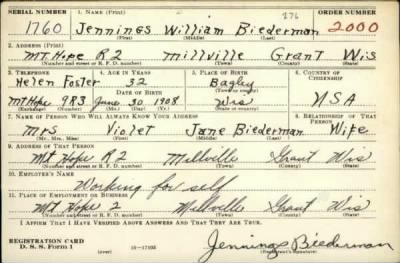 SERIAL NUMBER 1. NAME (Print) ORDER NUMBER
276
1760 Jennings William Biederman 2000
(First) (Middle) (Last)
2. ADDRESS (Print)
Mt. Hope R2 Millville Grant Wis
(Number and street or R. F. D. number) (Town) (County) (State)
3. TELEPHONE 4. AGE IN YEARS 5. PLACE OF BIRTH 6. COUNTRY OF CITIZENSHIP
Helen Foster 32 Bagley
DATE OF BIRTH (Town or county)
Mt Hope 983 June 30 1908 Wis USA
(Exchange) (Number) (Mo.) (Day) (Yr.) (State or country)
7. NAME OF PERSON WHO WILL ALWAYS KNOW YOUR ADDRESS 8. RELATIONSHIP OF THAT PERSON
Mrs Violet Jane Biederman Wife
(Mr., Mrs., Miss) (First) (Middle) (Last)
9. ADDRESS OF THAT PERSON
Mt Hope R2 Millville Grant Wis
(Number and street or R. F. D. number) (Town) (County) (State)
10. EMPLOYER'S NAME
Working for self
11. PLACE OF EMPLOYMENT OR BUSINESS
Mt Hope 2 Millville Grant Wis
(Number and street or R. F. D. number) (Town) (County) (State)
I AFFIRM THAT I HAVE VERIFIED ABOVE ANSWERS AND THAT THEY ARE TRUE.
REGISTRATION CARD
D. S. S. Form 1 (over) 16—17105 Jennings Biederman
(Registrant's signature)